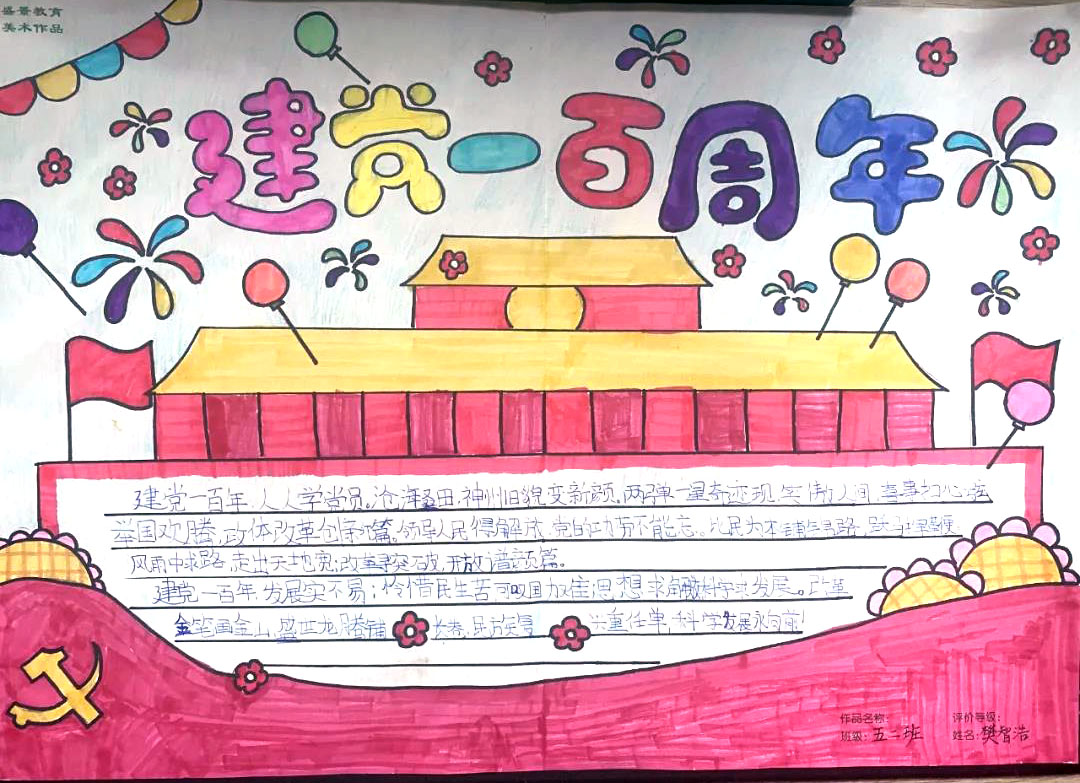 盛景教育
美术作品
建党一百周年
建党一百年,人人学党员。沧海桑田,神州旧貌变新颜。两弹一星奇迹现,笑傲人间,喜事扫心
举国欢腾,政体改革创新篇。领导人民得解放,党的功劳不能忘。
风雨中求路,走出天地宽;改革寻突破,开放谱新篇。
建党一百年,发展实不易;怜惜民生苦 思想求 科学求发展。改革
金笔画金山,盛世龙腾铺 长卷,民族 共重任单,科学发展永向前!
作品名称:
评价等级:
班级:五二班
姓名:樊智浩